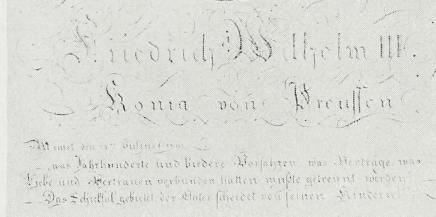 Friedrich Wilhelm III.
König von Preussen
Memel, den
was Jahrhunderte und biedere Vorfahren, was Verträge, was
Liebe und Vertrauen verbunden hatten mußte getrennt werden
Das Schicksal gebietet, der Vater scheidet von seinen Kindern